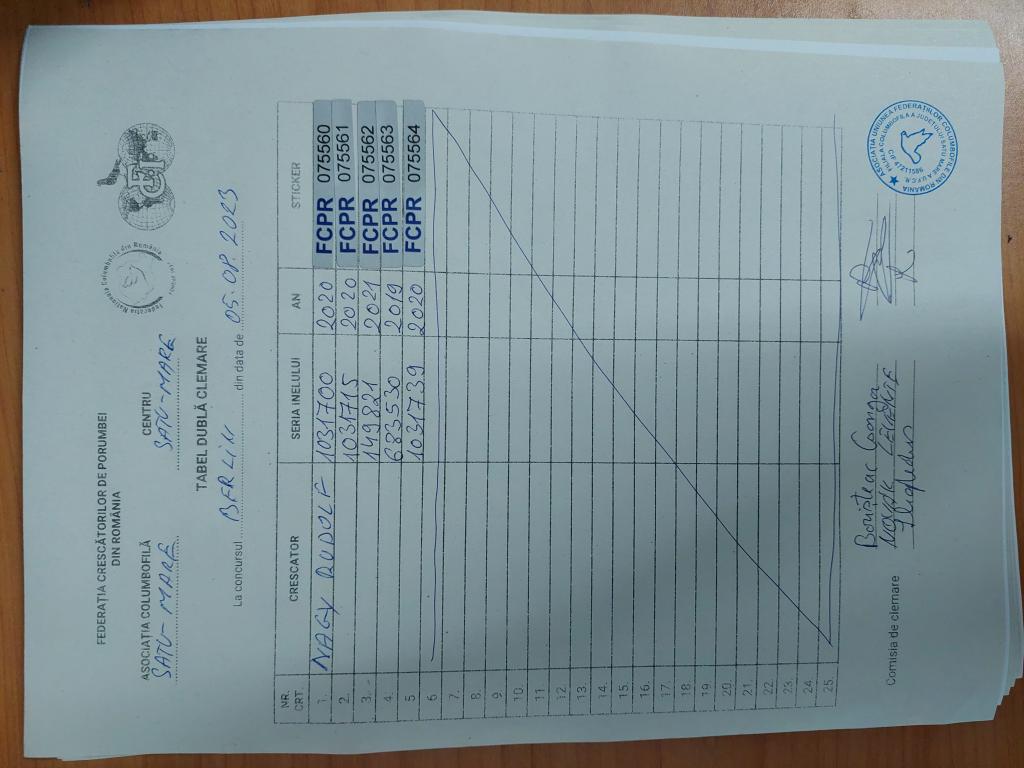 FEDERAȚIA CRESCĂTORILOR DE PORUMBEI
DIN ROMÂNIA
ASOCIAȚIA COLUMBOFILĂ
SATU-MARE
CENTRU
SATU-MARE
TABEL DUBLĂ CLEMARE
La concursul BERLIN din data de 05.08.2023
NR. CRT. CRESCATOR SERIA INELULUI AN STICKER
1. NAGY RUDOLF 1031700 2020 FCPR 075560
2. 1031715 2020 FCPR 075561
3. 149821 2021 FCPR 075562
4. 683530 2019 FCPR 075563
5 1031739 2020 FCPR 075564
6.
7.
8.
9.
10.
11
12.
13.
14.
15.
16.
17.
18.
19.
20.
21.
22.
23.
24.
25.
Comisia de clemare
ASOCIATIA UNIUNEA FEDERATIILOR COLUMBOFILE DIN ROMANIA
FILIALA COLUMBOFILA A JUDETULUI SATU MARE A U.F.C.R.
CIF 47211586